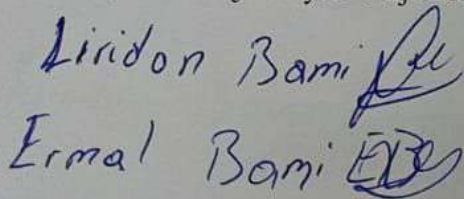 Liridon Bami
Ermal Bami